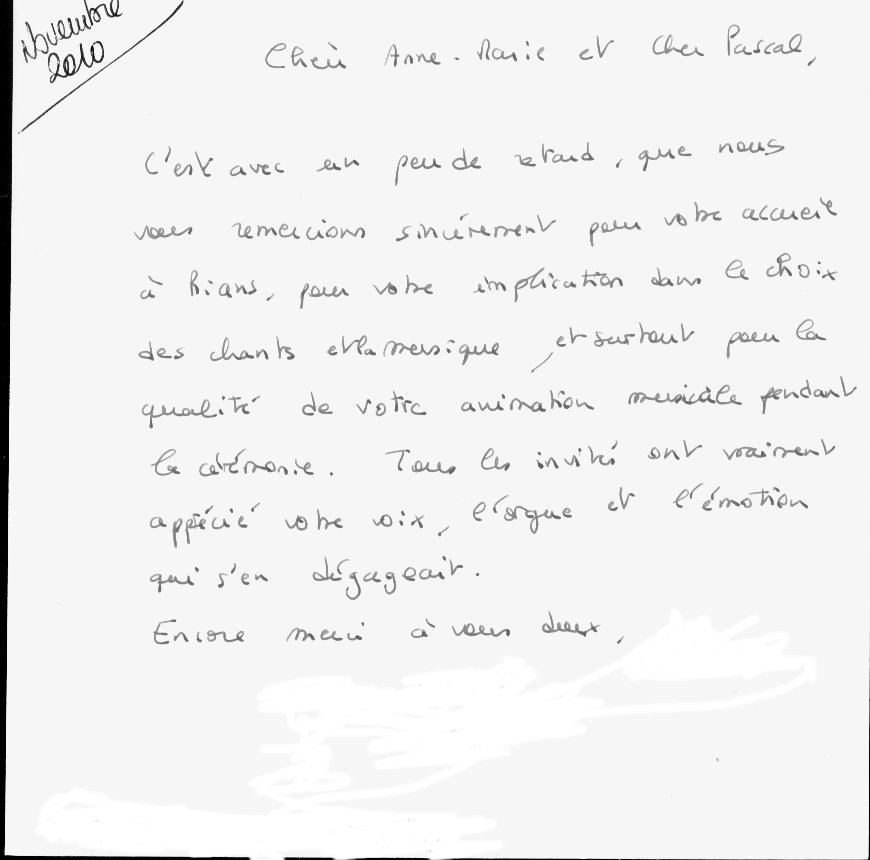 Novembre
2010
Chère Anne-Marie et Cher Pascal,
C'est avec un peu de retard, que nous
vous remercions sincèrement pour votre accueil
à Rians, pour votre implication dans le choix
des chants et la musique, et surtout pour la
qualité de votre animation musicale pendant
la cérémonie. Tous les invités ont vraiment
apprécié votre voix, l'orgue et l'émotion
qui s'en dégageait.
Encore merci à vous deux,